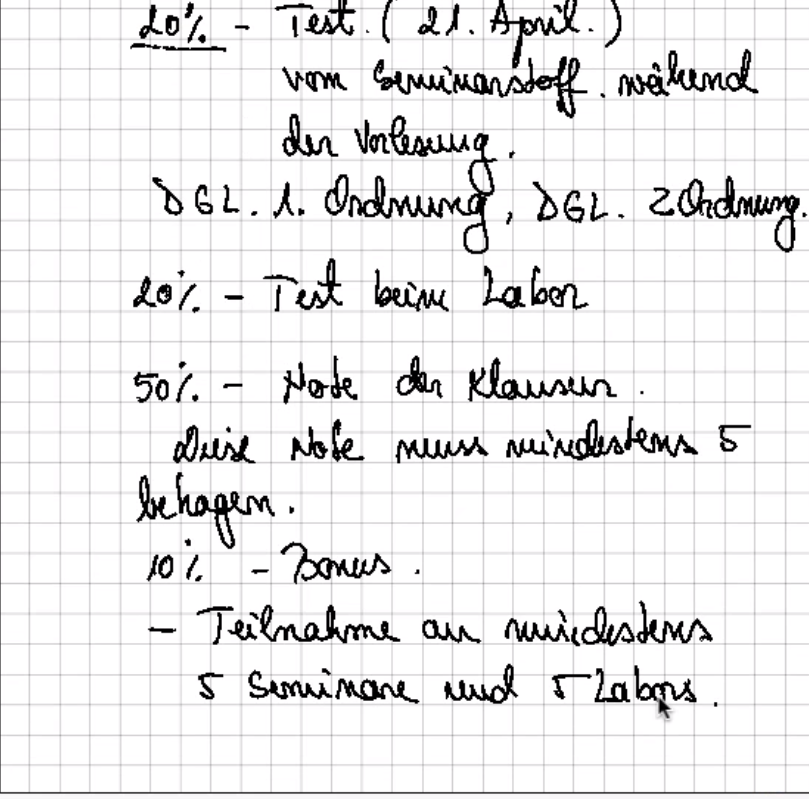 20% - Test. ( 21. April. )
vom Seminarstoff. während
der Vorlesung.
DGL. 1. Ordnung, DGL. 2 Ordnung.
20% - Test beim Labor
50% - Note der Klausur.
Diese Note muss mindestens 5
betragen.
10% - Bonus.
- Teilnahme an mindestens
5 Seminare und 5 Labors.